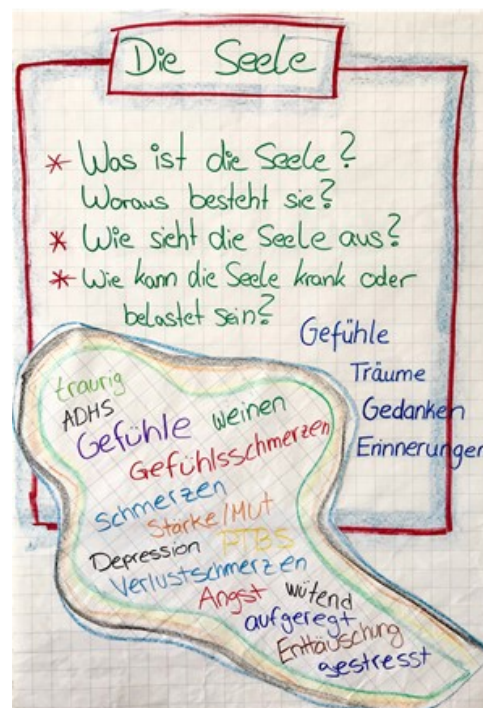 Die Seele
* Was ist die Seele?
Woraus besteht sie?
* Wie sieht die Seele aus?
* Wie kann die Seele krank oder
belastet sein?
Gefühle
Träume
Gedanken
Erinnerungen
traurig
ADHS
Gefühle weinen
Gefühlsschmerzen
Schmerzen
Stärke/Mut
Depression PTBS
Verlustschmerzen
Angst wütend
aufgeregt
Enttäuschung
gestresst